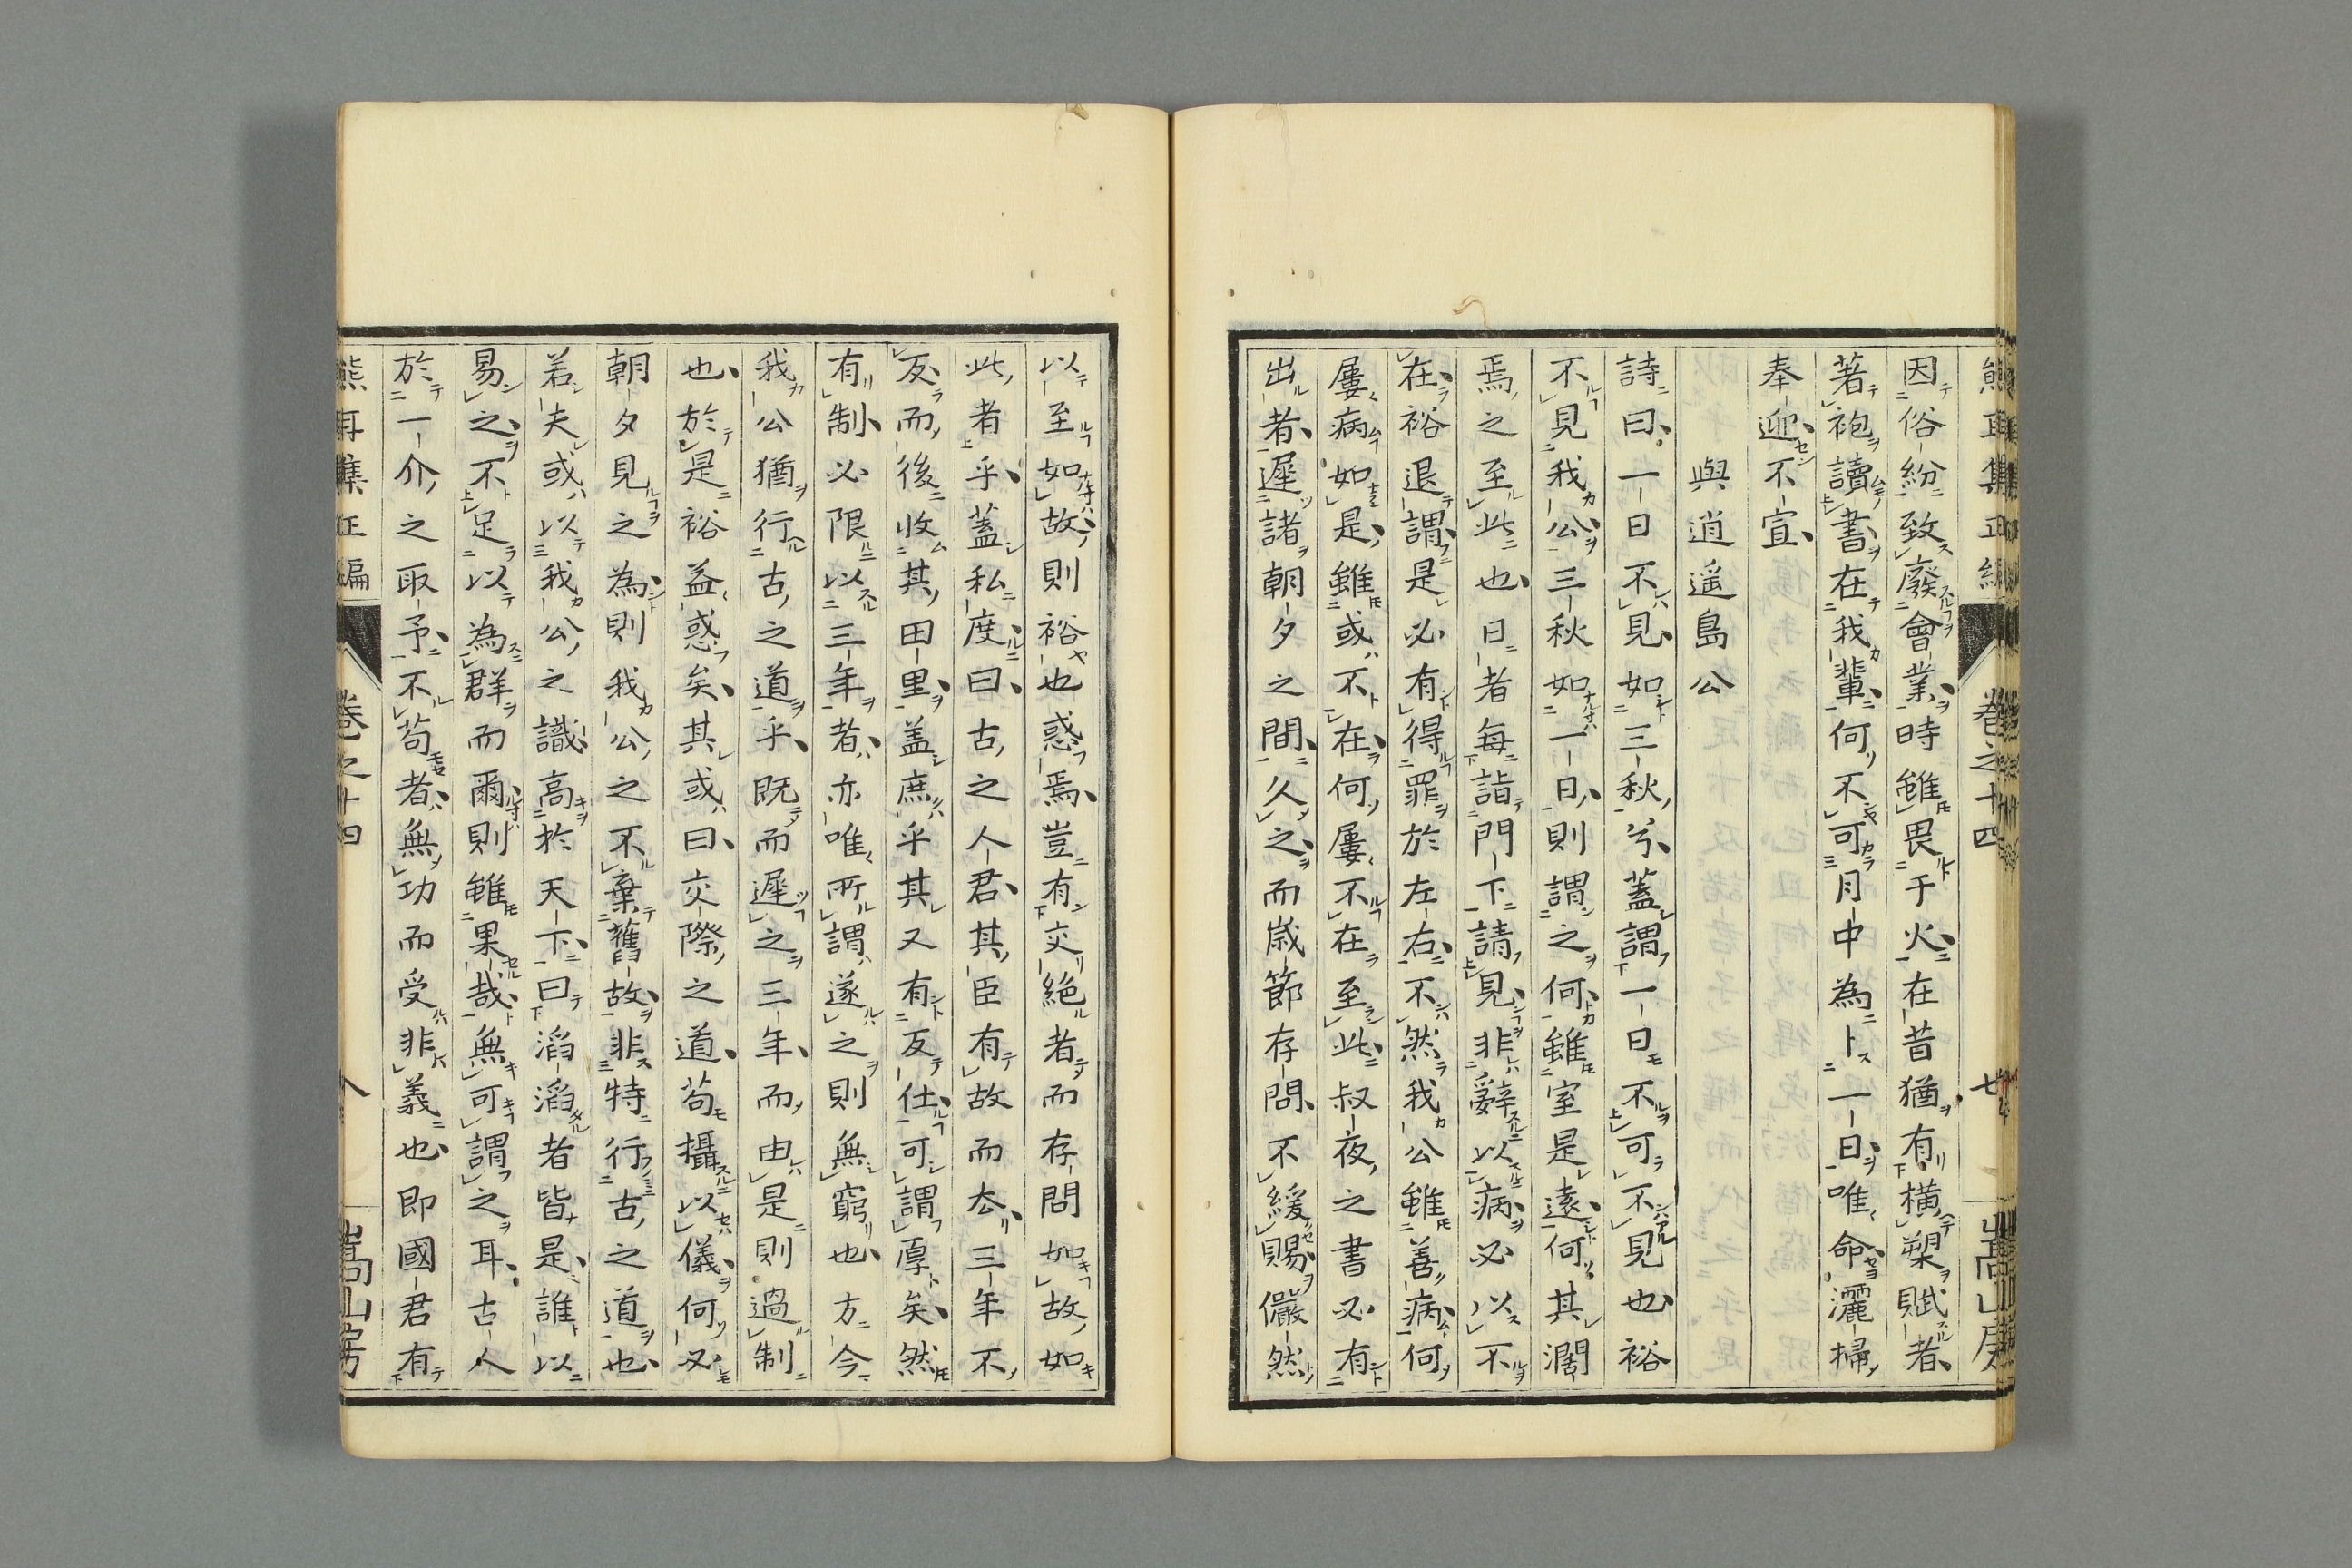 因俗紛致廢會業時雖畏于火在昔猶有橫槊賦者
著袍讀書在我輩何不可月中為卜一日唯命灑掃
奉迎不宣
與逍遥島公
詩曰一日不見如三秋兮蓋謂一日不可不見也裕
不見我公三秋如一日則謂之何雖室是遠何其濶
焉之至此也日者每詣門下請見非辭以病必以不
在裕退謂是必有得罪於左右不然我公雖善病何
屢病如是雖或不在何屢不在至此叔夜之書必有
出者遲諸朝夕之間久之而歳節存問不緩賜儼然
以至如故則裕也惑焉豈有交絕者而存問如故如
此者乎蓋私度曰古之人君其臣有故而去三年不
反而後收其田里盖庶乎其又有反仕可謂厚矣然
有制必限以三年者亦唯所謂遂之則無窮也方今
我公猶行古之道乎既而遲之三年而由是則過制
也於是裕益惑矣其或曰交際之道苟攝以儀何必
朝夕見之為則我公之不棄舊故非特行古之道也
若夫或以我公之識高於天下曰滔滔者皆是誰以
易之不足以為群而爾則雖果哉無可謂之耳古人
於一介之取予不苟者無功而受非義也即國君有
熊耳集正編　卷之十四　八　嵩山房